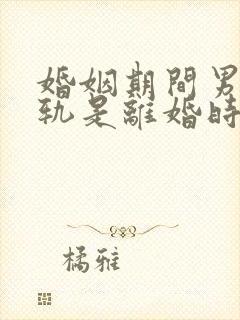 婚姻期間男
軌是離婚時
橘雅